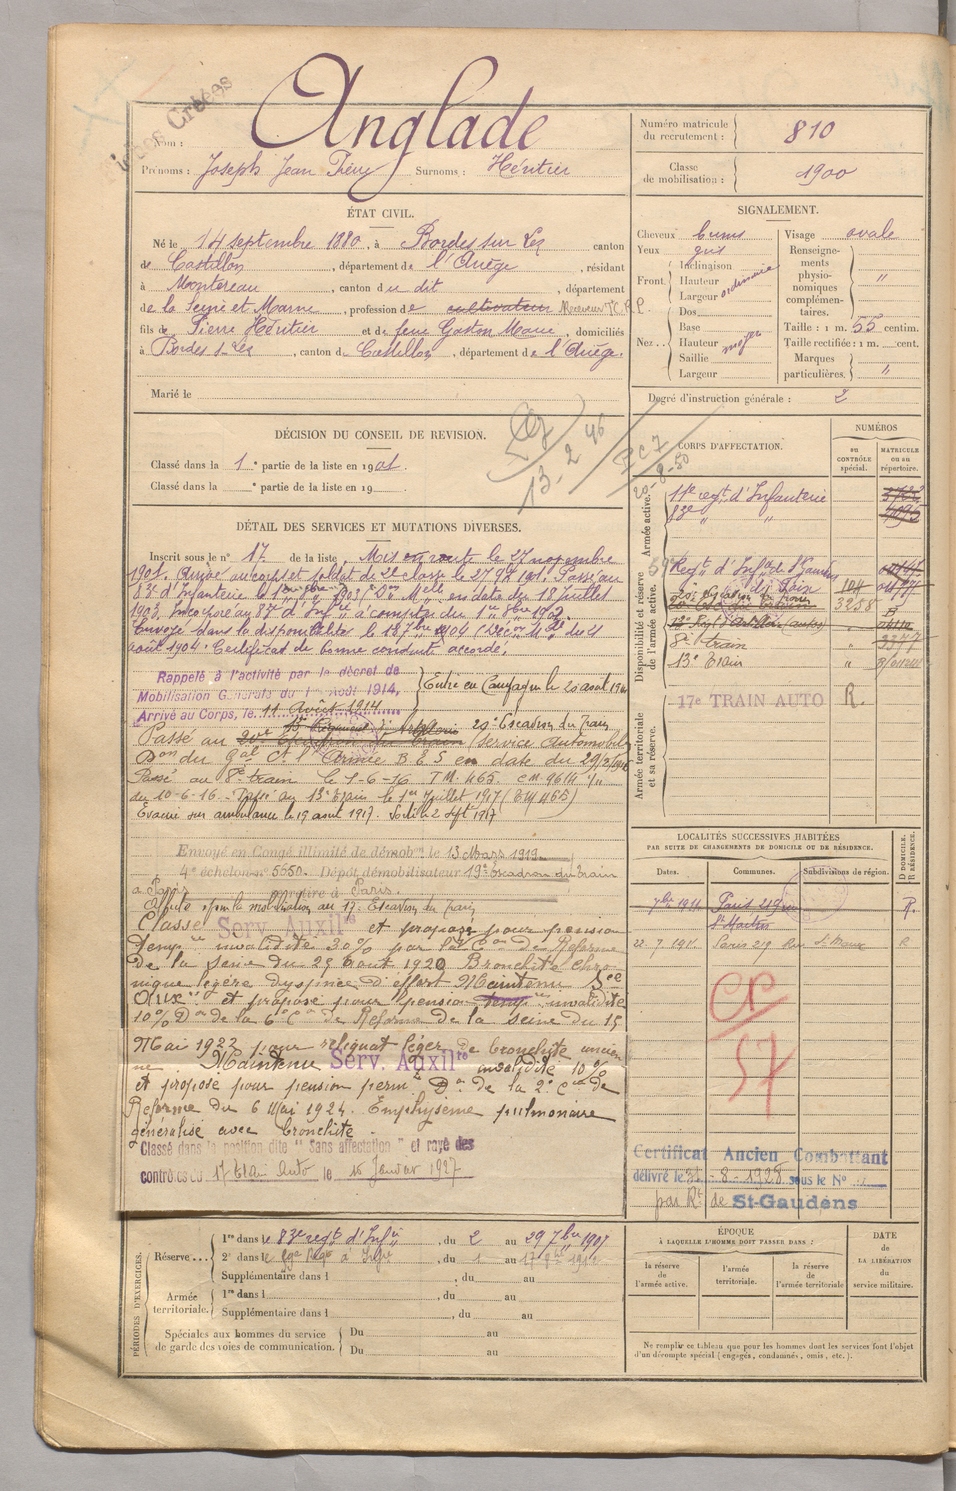 Crées
Nom : Anglade
Prénoms : Joseph Jean Surnoms : Héritier
Numéro matricule du recrutement : 810
Classe de mobilisation : 1900
ÉTAT CIVIL.
Né le 14 septembre 1880, à Bordes sur Lez canton
de Castillon, département de l'Ariège, résidant
à Montereau, canton du dit, département
de la Seine et Marne, profession de cultivateur Receveur T.C.R.P.
fils de Pierre Héritier et de feue Gaston Marie, domiciliés
à Bordes s. Lez, canton de Castillon, département de l'Ariège.
Marié le
SIGNALEMENT.
Cheveux bruns
Yeux gris
Front. Inclinaison
Hauteur
Largeur ordinaire
Nez... Dos
Base
Hauteur moyen
Saillie
Largeur
Visage ovale
Renseignements physionomiques complémentaires. "
Taille : 1 m. 55 centim.
Taille rectifiée : 1 m. cent.
Marques particulières. "
Degré d'instruction générale : 2
DÉCISION DU CONSEIL DE REVISION.
Classé dans la 1.e partie de la liste en 1901.
Classé dans la e partie de la liste en 19
13. 2 46
20-8-50
DÉTAIL DES SERVICES ET MUTATIONS DIVERSES.
Inscrit sous le n° 17. de la liste, Mis en route le 27 novembre
1901. Arrivé au corps et soldat de 2e classe le 27 9bre 1901. Passé au
83e d'Infanterie le 1903, en date du 18 juillet
1903. Incorporé au 83e d'Inf. à compter du 1er
Envoyé dans la disponibilité le 1904 du 21
août 1904. Certificat de bonne conduite accordé.
Rappelé à l'activité par le décret de
Mobilisation Générale du 1er Août 1914,
Arrivé au Corps, le 11 Août 1914
Entré en Campagne le 20 août 1914
20e Escadron du Train
Passé au (Service Automobile)
du Gal Ct l'Armée en date du 29/2/1916
Passé au 8e train le 1-6-16 T.M. 465.
du 10-6-16. Passé au 13e Train le 1er Juillet 1917 (T.M 465)
Evacué sur ambulance le 19 août 1917. Sorti le 2 Sept 1917
Envoyé en Congé illimité de démob. le 13 Mars 1919
4e échelon n° 5650. Dépôt démobilisateur 19e Escadron du train
à Paris se retire à Paris.
Affecté pour la mobilisation au 17e Escadron du train
Classé Serv. Auxilre et proposé pour pension
temp. invalidité 30% par la Con de Réforme
de la Seine du 29 Août 1920 Bronchite chronique
légère dyspnée d'effort Maintenu Sce
Auxre et proposé pour pension temp invalidité
10% Don de la 6e Con de Réforme de la Seine du 15
Mai 1922 pour reliquat léger de bronchite ancienne
Maintenu Serv. Auxilre invalidité 10%
et proposé pour pension perm. Don de la 2e Con de
Réforme du 6 Mai 1924. Emphysème pulmonaire
généralisé avec bronchite
Classé dans la position dite "Sans affectation" et rayé des
contrôles du 17 Train Auto le 16 Janvier 1927
CORPS D'AFFECTATION.
NUMÉROS
au CONTRÔLE spécial.
MATRICULE ou au répertoire.
Armée active.
11e regt d'Infanterie
83e " "
Disponibilité et réserve de l'armée active.
59e Regt d'Infie
20e Escadron du Train 104
3258
8e train "
13e Train "
Armée territoriale et sa réserve.
17e TRAIN AUTO R.
LOCALITÉS SUCCESSIVES HABITÉES
PAR SUITE DE CHANGEMENTS DE DOMICILE OU DE RÉSIDENCE.
Dates. Communes. Subdivisions de région. D DOMICILE. R RÉSIDENCE.
7bre 1911 Paris 219 rue St Martin R.
22.7.1911. Paris 219 Rue St Maur R
CP
57
Certificat Ancien Combattant
délivré le 31-8-1928 sous le N°
par Rt de St-Gaudens
PÉRIODES D'EXERCICES.
Réserve... 1re dans le 83e regt d'Inf., du 2 au 29 7bre 1907
2e dans le 59e, du 1 au 17
Supplémentaire dans l, du au
Armée territoriale. 1re dans l, du au
Supplémentaire dans l, du au
Spéciales aux hommes du service de garde des voies de communication. Du au
Du au
ÉPOQUE
À LAQUELLE L'HOMME DOIT PASSER DANS :
la réserve de l'armée active.
l'armée territoriale.
la réserve de l'armée territoriale
DATE DE LA LIBÉRATION du service militaire.
Ne remplir ce tableau que pour les hommes dont les services font l'objet
d'un décompte spécial (engagés, condamnés, omis, etc.).